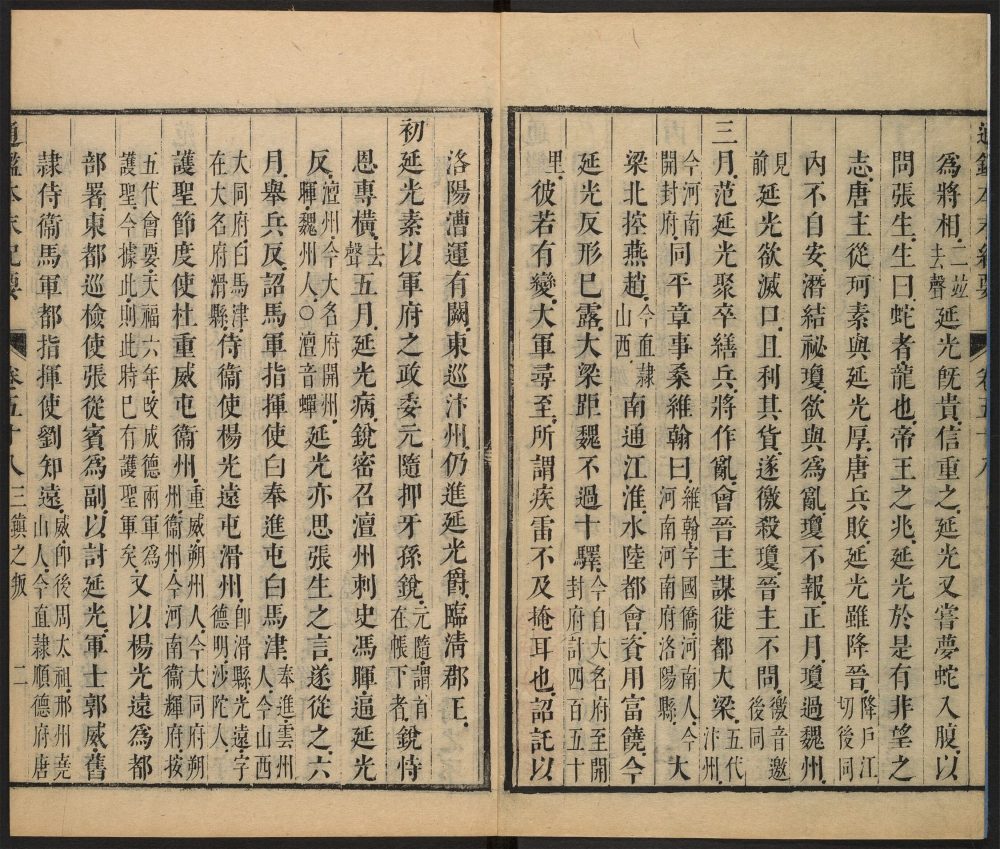 通鑑本末紀要 卷五十八
為將相.二並去聲延光旣貴.信重之.延光又嘗夢蛇入腹.以
問張生.生曰.蛇者.龍也.帝王之兆.延光於是有非望之
志.唐主從珂素與延光厚.唐兵敗.延光雖降晉.降戸江切後同
內不自安.潛結祕瓊.欲與為亂.瓊不報.正月.瓊過魏州.
見前延光欲滅口.且利其貨.遂徼殺瓊.晉主不問.徼音邀後同
三月.范延光聚卒繕兵.將作亂.會晉主謀徙都大梁.五代汴州.
今河南開封府.同平章事桑維翰曰.維翰字國僑河南人.今河南河南府洛陽縣.大
梁北控燕趙.今直隷山西南通江淮.水陸都會.資用富饒.今
延光反形已露.大梁距魏不過十驛.今自大名府至開封府計四百五十
里.彼若有變.大軍尋至.所謂疾雷不及掩耳也.詔託以
洛陽漕運有闕.東巡汴州.仍進延光爵.臨淸郡王.
初延光素以軍府之政委元隨押牙孫銳.元隨謂首在帳下者.銳恃
恩專橫.去聲五月.延光病.銳密召澶州刺史馮暉.逼延光
反.澶州今大名府開州.暉魏州人.○澶音蟬延光亦思張生之言.遂從之.六
月.舉兵反.詔馬軍指揮使白奉進屯白馬津.奉進雲州人.今山西
大同府.白馬津.在大名府滑縣.侍衞使楊光遠屯滑州.卽滑縣.光遠字德明.沙陀人.
護聖節度使杜重威屯衞州.重威朔州人.今大同府朔州.衞州今河南衞輝府.按
五代會要.天福六年改成德兩軍為護聖.今據此.則此時已有護聖軍矣.又以楊光遠為都
部署.東都巡檢使張從賓為副.以討延光.軍士郭威.舊
隷侍衞馬軍都指揮使劉知遠.威卽後周太祖.邢州堯山人.今直隷順德府唐
通鑑本末紀要 卷五十八 三鎭之叛 二